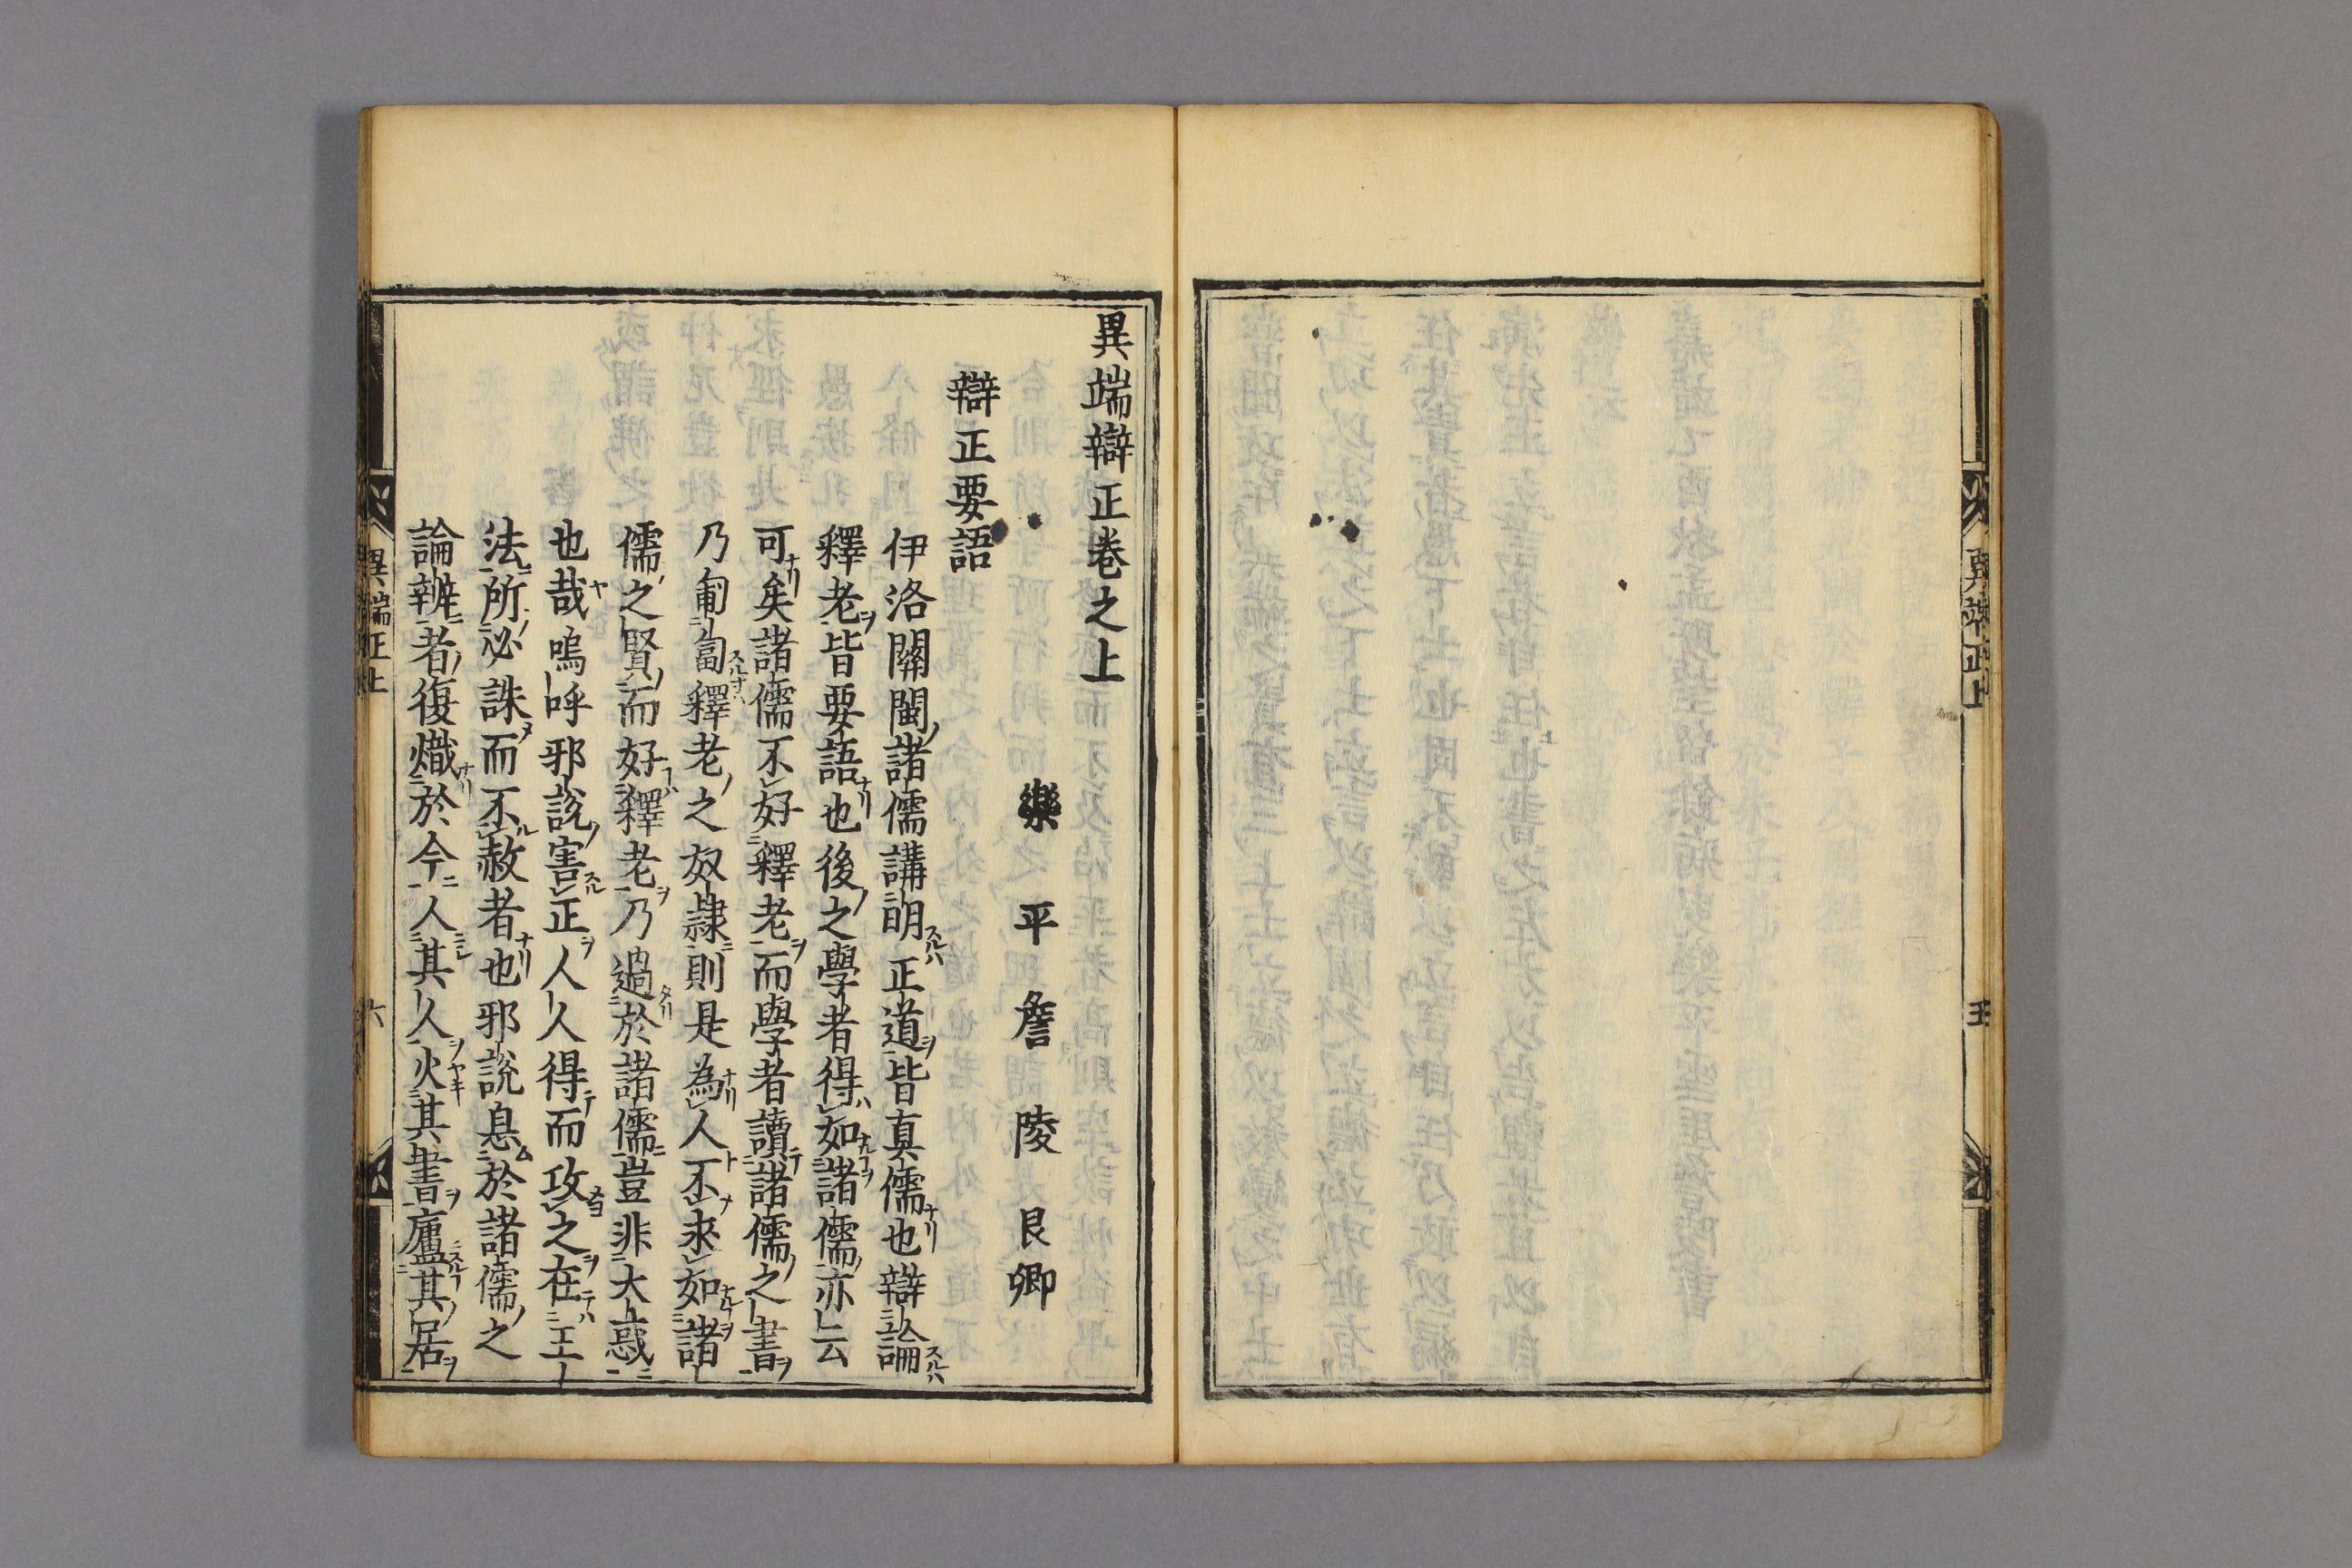 異端辯正卷之上
樂平詹陵艮卿
辯正要語
伊洛關閩諸儒講明正道皆真儒也辯論
釋老皆要語也後之學者得如諸儒亦云
可矣諸儒不好釋老而學者讀諸儒之書
乃匍匐釋老之奴隷則是為人不求如諸
儒之賢而好釋老乃過於諸儒豈非大惑
也哉嗚呼邪說害正人人得而攻之在王
法所必誅而不赦者也邪說息於諸儒之
論辨者復熾於今人其人火其書廬其居
異端正上
六
異端辯正上
五